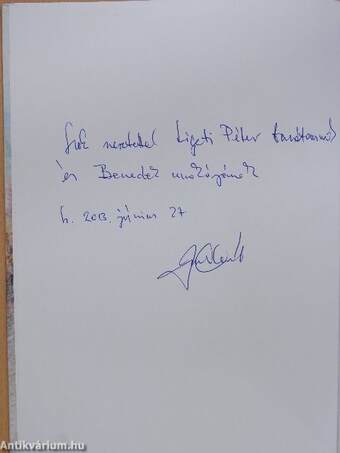 Sok szeretettel Ligeti Péter barátomnak
és Benedek unokájának
b. 2013. június 27
Antikvárium.hu